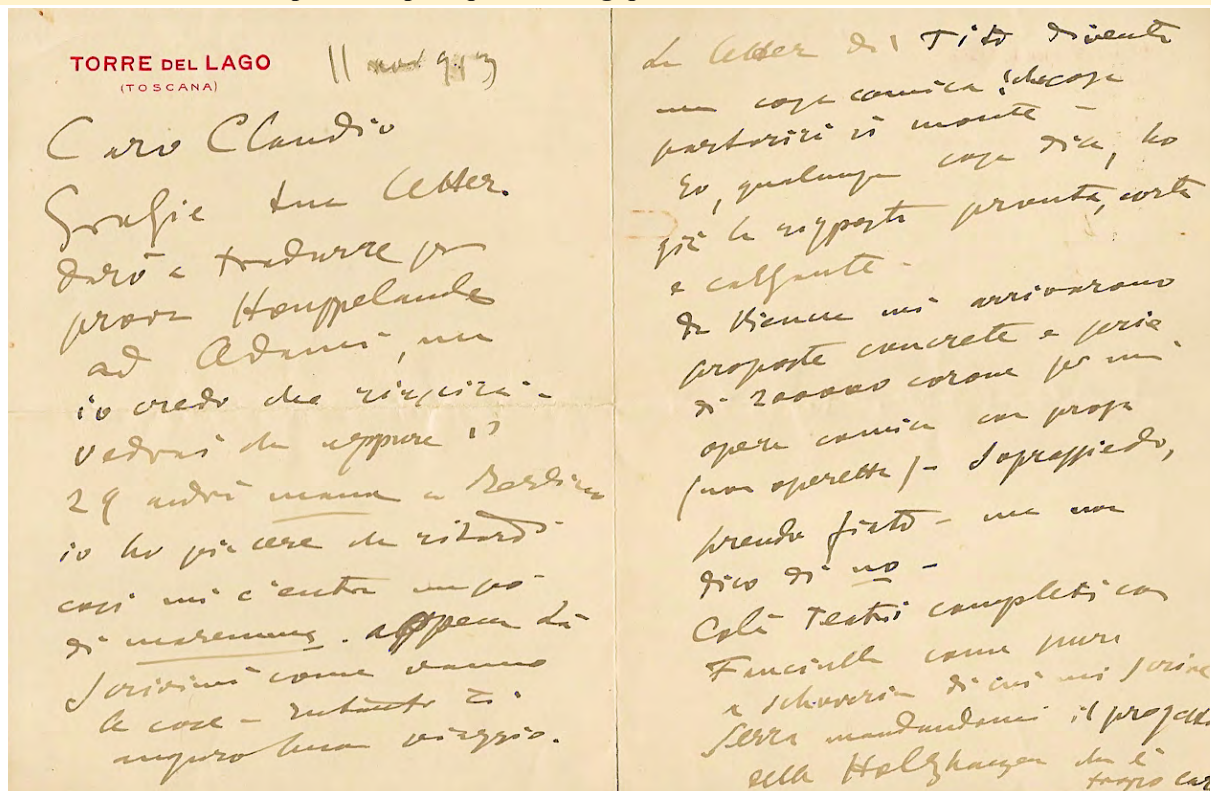 TORRE DEL LAGO
(TOSCANA)
11 nov 913
Caro Claudio
Grazie tua letter.
darò a tradurre per
prova Houppelande
ad Adami, ma
io credo che riuscirà -
vedrai che neppure il
29 andrà in a Berlino
io ho piacere che ritardi
così mi c'entra un po'
di maremma. appena là
scrivimi come vanno
le cose - intanto ti
auguro buon viaggio.
La letter di Tito diventa
una cosa comica! che cosa
partorirà il monte -
Io, qualunque cosa dica, ho
già la risposta pronta, corta
e calzante -
da Vienna mi arrivarono
proposte concrete e serie
di 200000 corone per un
opera comica con prosa
(non operetta) - Soprassiedo,
prendo fiato - ma non
dico di no -
Colà Teatri completi con
Fanciulla come pure
a di cui mi scrive
Serra mandandomi il progetto
della Holzhagen che è
troppo car